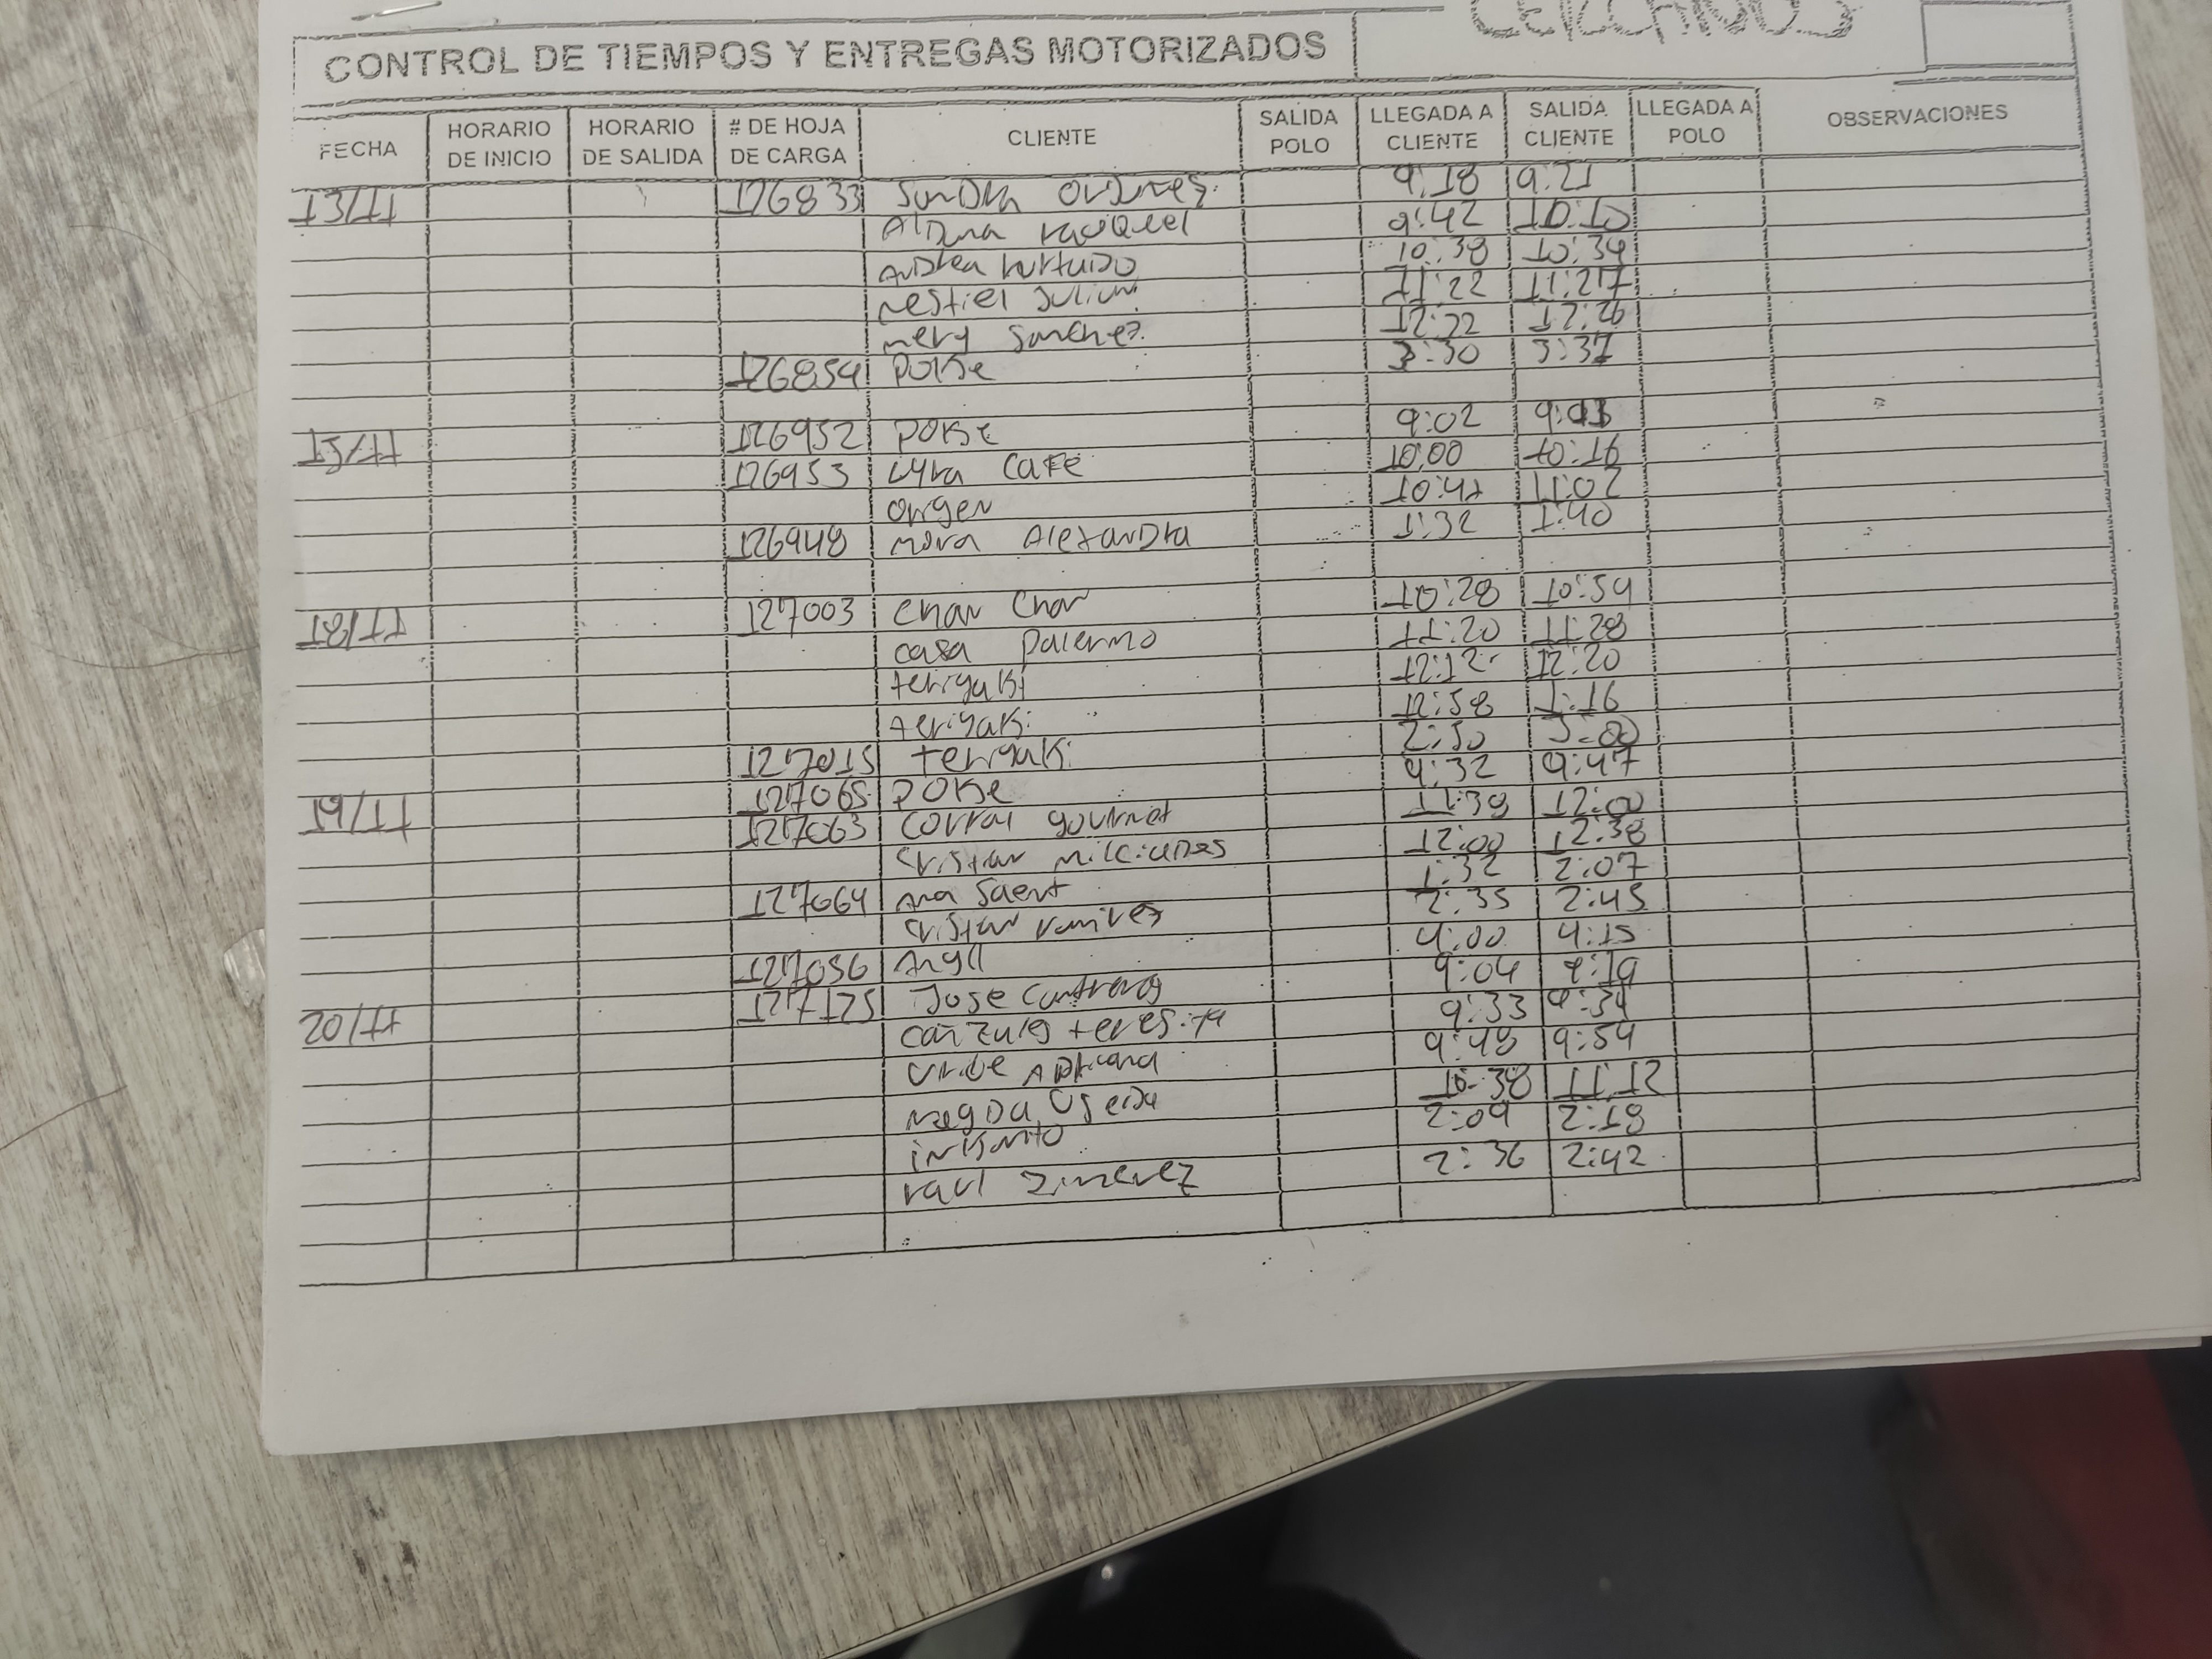 CONTROL DE TIEMPOS Y ENTREGAS MOTORIZADOS
FECHA HORARIO DE INICIO HORARIO DE SALIDA # DE HOJA DE CARGA CLIENTE SALIDA POLO LLEGADA A CLIENTE SALIDA CLIENTE LLEGADA A POLO OBSERVACIONES
13/11 126833 Sandra Ordenes 9:18 9:21
Aldana 9:42 10:10
Andrea hurtado 10:38 10:39
nestiel Julian 11:22 11:27
mery Sanchez 12:22 12:26
126854 POKE 3:30 3:37
15/11 126952 POKE 9:02 9:03
126953 Lyra Cafe 10:00 10:16
origen 11:02
126948 mora Alexandra 1:32 1:40
18/11 127003 Chan Chan 10:28 10:59
casa Palermo 11:20 11:28
teriyaki 12:12 12:20
teriyaki 12:58 1:16
127015 teriyaki 2:50 3:00
19/11 127065 POKE 9:32 9:47
127063 Corral gourmet 11:39 12:00
Cristian Milciades 12:00 12:38
127064 Ana Saent 1:32 2:07
Cristian ramirez 2:35 2:45
127056 4:00 4:15
20/11 127125 Jose Contreras 9:04 9:19
teresita 9:33 9:34
Uribe Adriana 9:48 9:54
10:38 11:12
inkanto 2:09 2:18
raul Zimenez 2:36 2:42